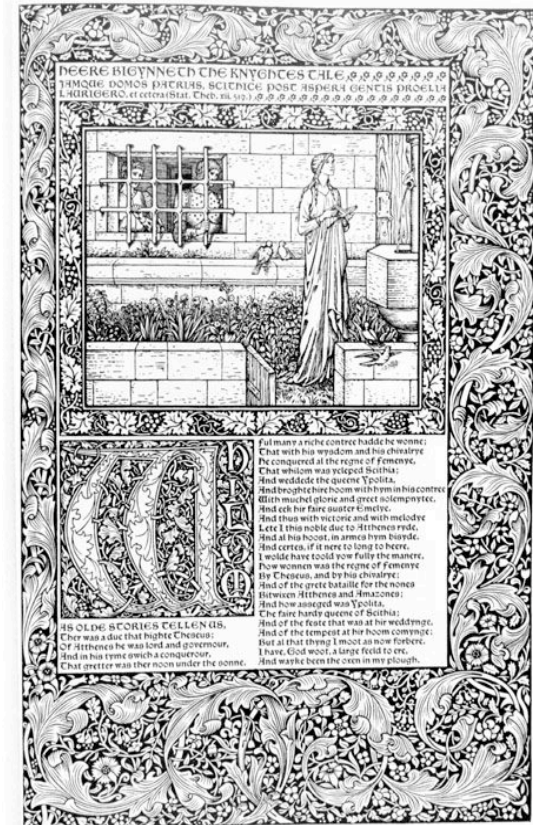 HEERE BIGYNNETH THE KNYGHTES TALE
IAMQUE DOMOS PATRIAS, SCITHICE POST ASPERA GENTIS PROELIA
LAURIGERO, et cetera (Stat. Theb. xii. 519.)
WHILOM
AS OLDE STORIES TELLEN US,
Ther was a duc that highte Theseus;
Of Atthenes he was lord and governour,
And in his tyme swich a conquerour,
That gretter was ther noon under the sonne.
Ful many a riche contree hadde he wonne;
That with his wysdom and his chivalrye
He conquered al the regne of Femenye,
That whilom was ycleped Scithia;
And weddede the queene Ypolita,
And broghte hire hoom with hym in his contree
With muchel glorie and greet solempnytee,
And eek hir faire suster Emelye.
And thus with victorie and with melodye
Lete I this noble duc to Atthenes ryde,
And al his hoost, in armes hym bisyde.
And certes, if it nere to long to heere,
I wolde have toold yow fully the manere,
How wonnen was the regne of Femenye
By Theseus, and by his chivalrye;
And of the grete bataille for the nones
Bitwixen Atthenes and Amazones;
And how asseged was Ypolita,
The faire hardy queene of Scithia;
And of the feste that was at hir weddynge,
And of the tempest at hir hoom comynge;
But al that thyng I moot as now forbere.
I have, God woot, a large feeld to ere,
And wayke been the oxen in my plough.